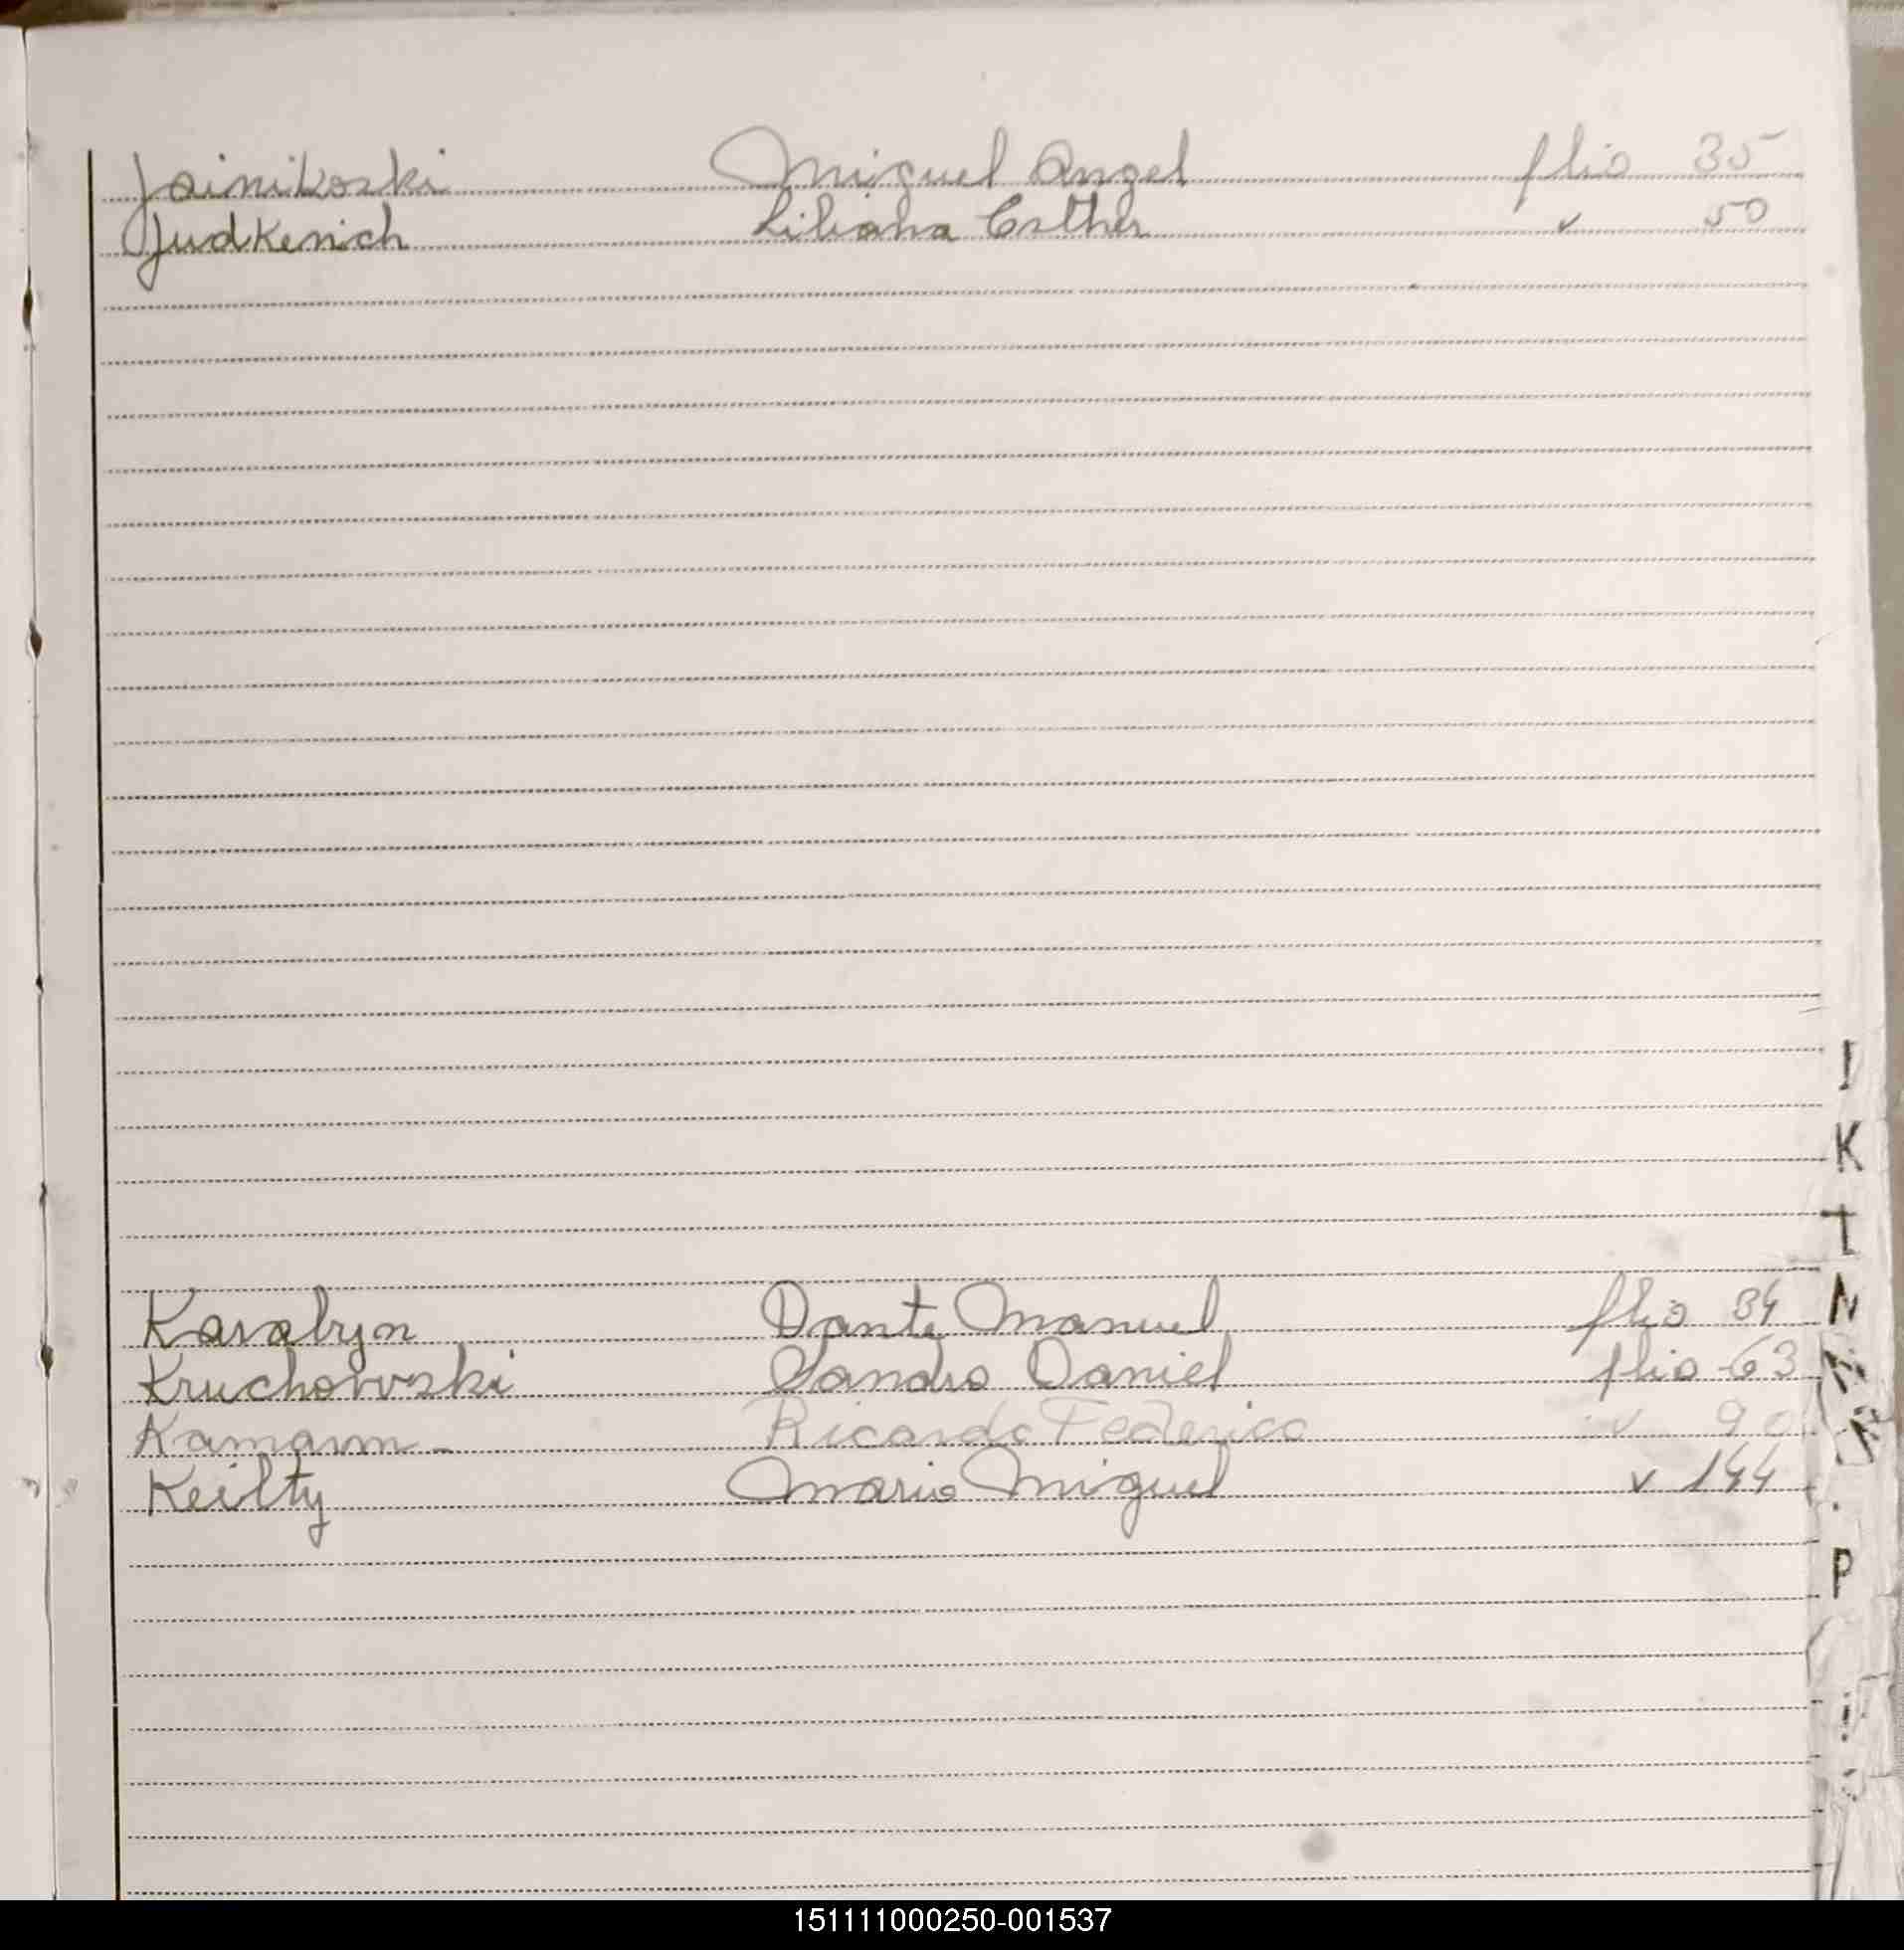 Jainikoski Miguel Angel flio 35
Judkevich Liliana Esther v 50
I
K
Karabyn Dante Manuel flio 34
N
Kruchovvski Sandro Daniel flio 63
Kamann - Ricardo Federico v 90
Keilty Mario Miguel v 144
P
151111000250-001537